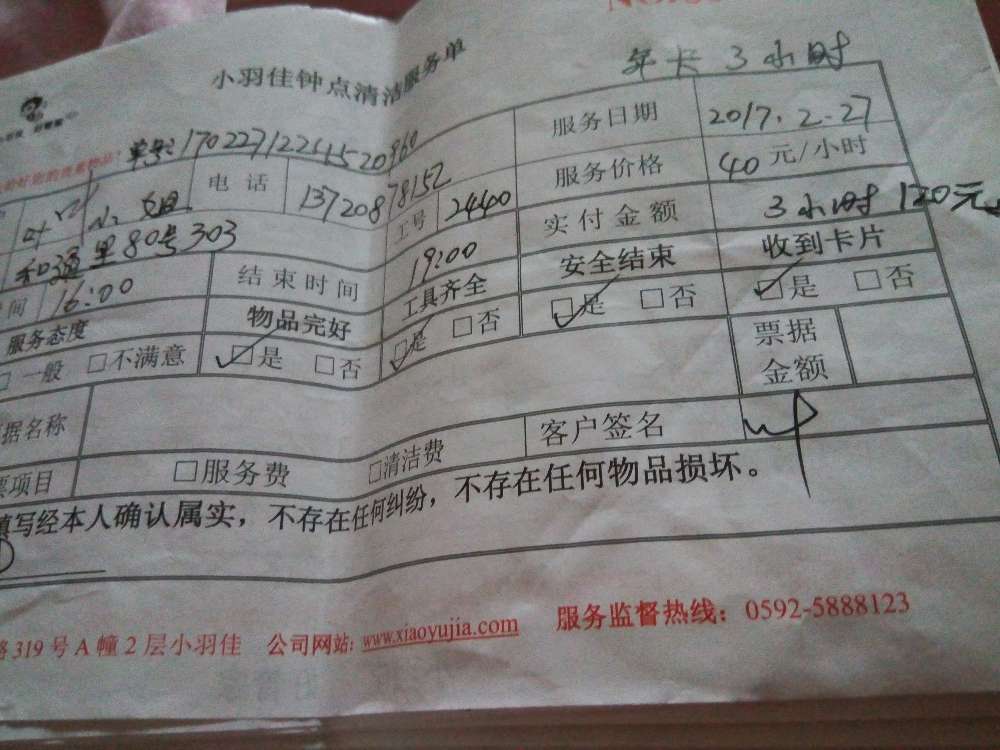 小羽佳钟点清洁服务单
年卡 3小时
单号:170227122415520960
服务日期 2017.2.27
叶小姐 电话 13720878152 工号 24400 服务价格 40元/小时
和通里80号303 实付金额 3小时 120元
间 16:00 结束时间 19:00
服务态度 物品完好 工具齐全 安全结束 收到卡片
□一般 □不满意 □是 □否 □是 □否 □是 □否 □是 □否
据名称 票据金额
票项目 □服务费 □清洁费 客户签名 叶
填写经本人确认属实，不存在任何纠纷，不存在任何物品损坏。
路319号A幢2层小羽佳 公司网站: www.xiaoyujia.com 服务监督热线: 0592-5888123